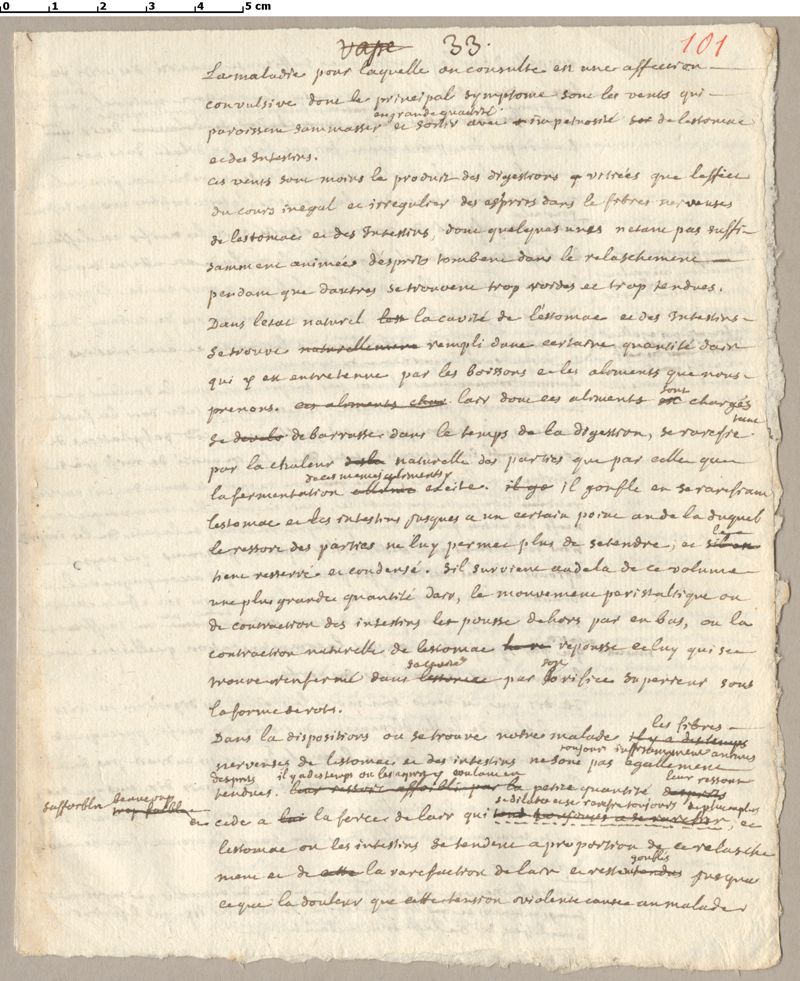 0 1 2 3 4 5 cm
vape 33. 101
La maladie pour laquelle on consulte est une affection
convulsive dont le principal symptome sont les vents qui
en grande quantité
paroissent sammasser et sortir avec impetuosité de lestomac
et des Intestins.
ces vents sont moins le produit des digestions vitiées que leffect
du cours inegal et irregulier des esprits dans le fibres nerveuses
de lestomac et des Intestins, dont quelques unes netant pas suffi-
samment animées desprits tombent dans le relaschement
pendant que dautres se trouvent trop roides et trop tendues.
Dans letat naturel la cavité de l'estomac et des Intestins
se trouve naturellement rempli dune certaine quantité dair
qui y est entretenue par les boissons et les aliments que nous
sont
prenons. ces aliments lair dont ces aliments est chargés
tant
se debarrasse dans le temps de la digestion, se rarefie
par la chaleur de la naturelle des parties que par celle que
de ces memes aliments
la fermentation excite. il gonfle en se rarefiant
lestomac et les intestins jusques a un certain point au dela duquel
le ressort des parties ne luy permet plus de setendre, et
tient resserré et condensé. Sil survient au dela de ce volume
une plus grande quantité dair, le mouvement peristaltique ou
de contraction des intestins le pousse dehors par en bas, ou la
contraction naturelle de lestomac repousse celuy qui se
sa cavité son
trouve renfermé dans lestomac par orifice superieur sous
la forme de rots.
les fibres
Dans la dispositions ou se trouve notre malade il y a des temps
toujour insuffisamment animées
nerveuses de lestomac et des intestins ne sont pas egallement
desprits il y a des temps ou les esprits y coulant en leur ressort
tendues. leur ressort affoibli par la petite quantité desprits
saffoiblit beaucoup trop foible
se dilate et se rarefie toujours de plus en plus
et cede a lui la force de lair qui tend toujours a se rarefier, et
lestomac ou les intestins se tendent a proportion de ce relasche
gonflés
ment et de cette la rarefaction de lair et restent tendus jusqua
ce que la douleur que cette tension violente cause au malade